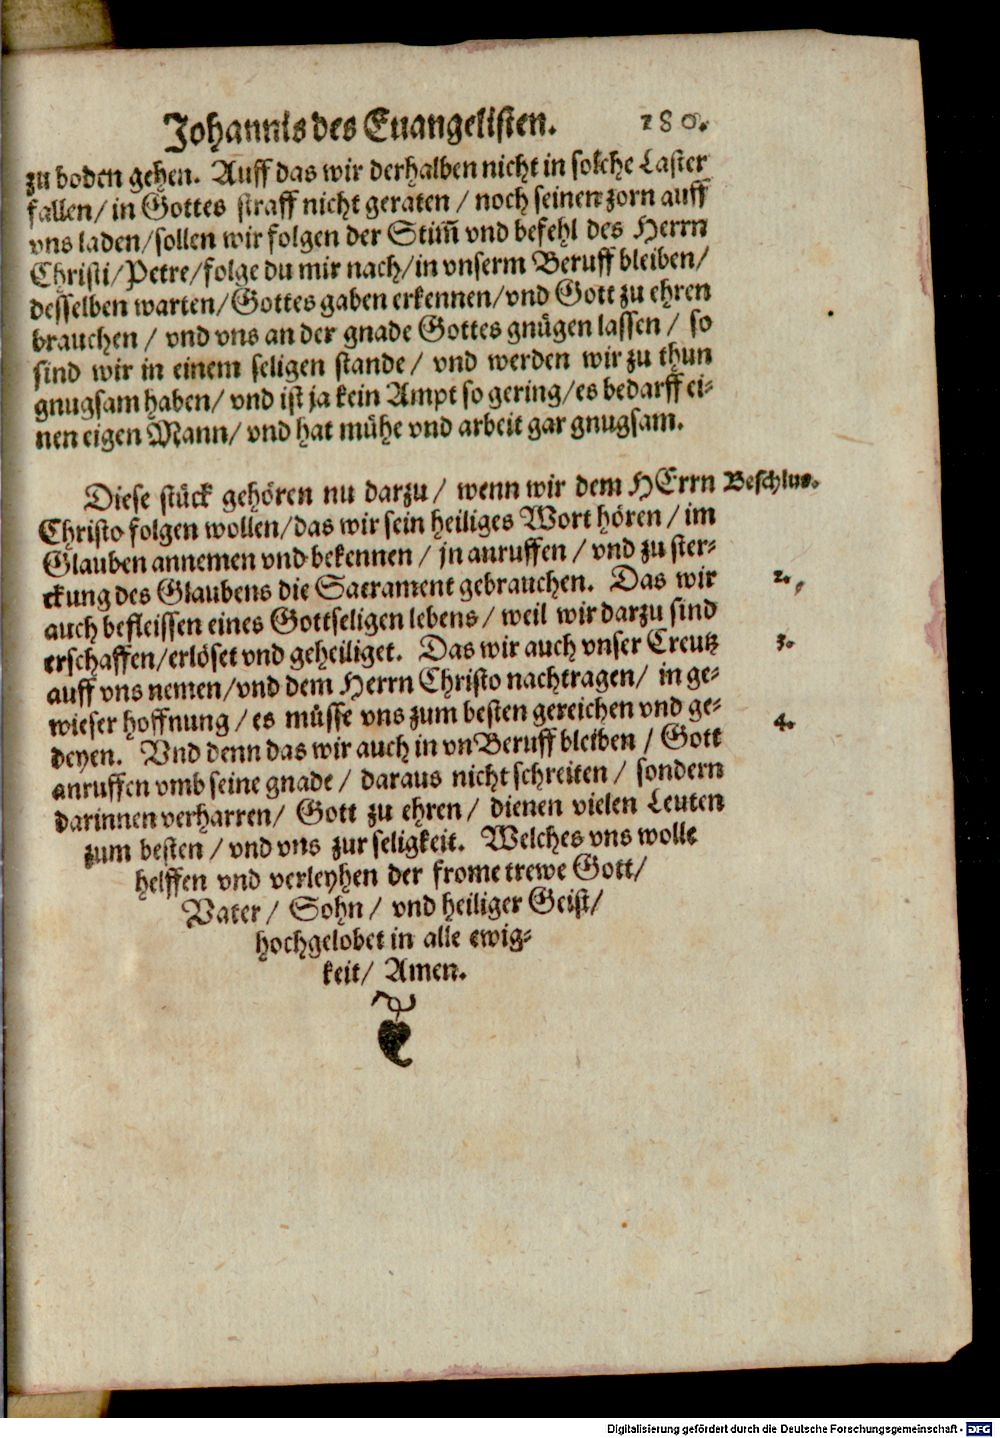 Johannis des Euangelisten. 180.
zu boden gehen. Auff das wir derhalben nicht in solche Laster
fallen/ in Gottes straff nicht geraten / noch seinen zorn auff
vns laden/sollen wir folgen der Stim̃ vnd befehl des Herrn
Christi/Petre/folge du mir nach/in vnserm Beruff bleiben/
desselben warten/Gottes gaben erkennen/vnd Gott zu ehren
brauchen / vnd vns an der gnade Gottes gnügen lassen / so
sind wir in einem seligen stande / vnd werden wir zu thun
gnugsam haben/ vnd ist ja kein Ampt so gering/es bedarff ei-
nen eigen Mann/ vnd hat mühe vnd arbeit gar gnugsam.
Diese stück gehören nu darzu / wenn wir dem HErrn Beschlus.
Christo folgen wollen/das wir sein heiliges Wort hören / im
Glauben annemen vnd bekennen / jn anruffen / vnd zu ster-
ckung des Glaubens die Sacrament gebrauchen. Das wir 2.
auch befleissen eines Gottseligen lebens / weil wir darzu sind
erschaffen/erlöset vnd geheiliget. Das wir auch vnser Creutz 3.
auff vns nemen/vnd dem Herrn Christo nachtragen/ in ge-
wieser hoffnung / es müsse vns zum besten gereichen vnd ge-
deyen. Vnd denn das wir auch in vn Beruff bleiben / Gott 4.
anruffen vmb seine gnade / daraus nicht schreiten / sondern
darinnen verharren/ Gott zu ehren / dienen vielen Leuten
zum besten / vnd vns zur seligkeit. Welches vns wolle
helffen vnd verleyhen der frome trewe Gott/
Vater / Sohn / vnd heiliger Geist/
hochgelobet in alle ewig-
keit/ Amen.
Digitalisierung gefördert durch die Deutsche Forschungsgemeinschaft - DFG